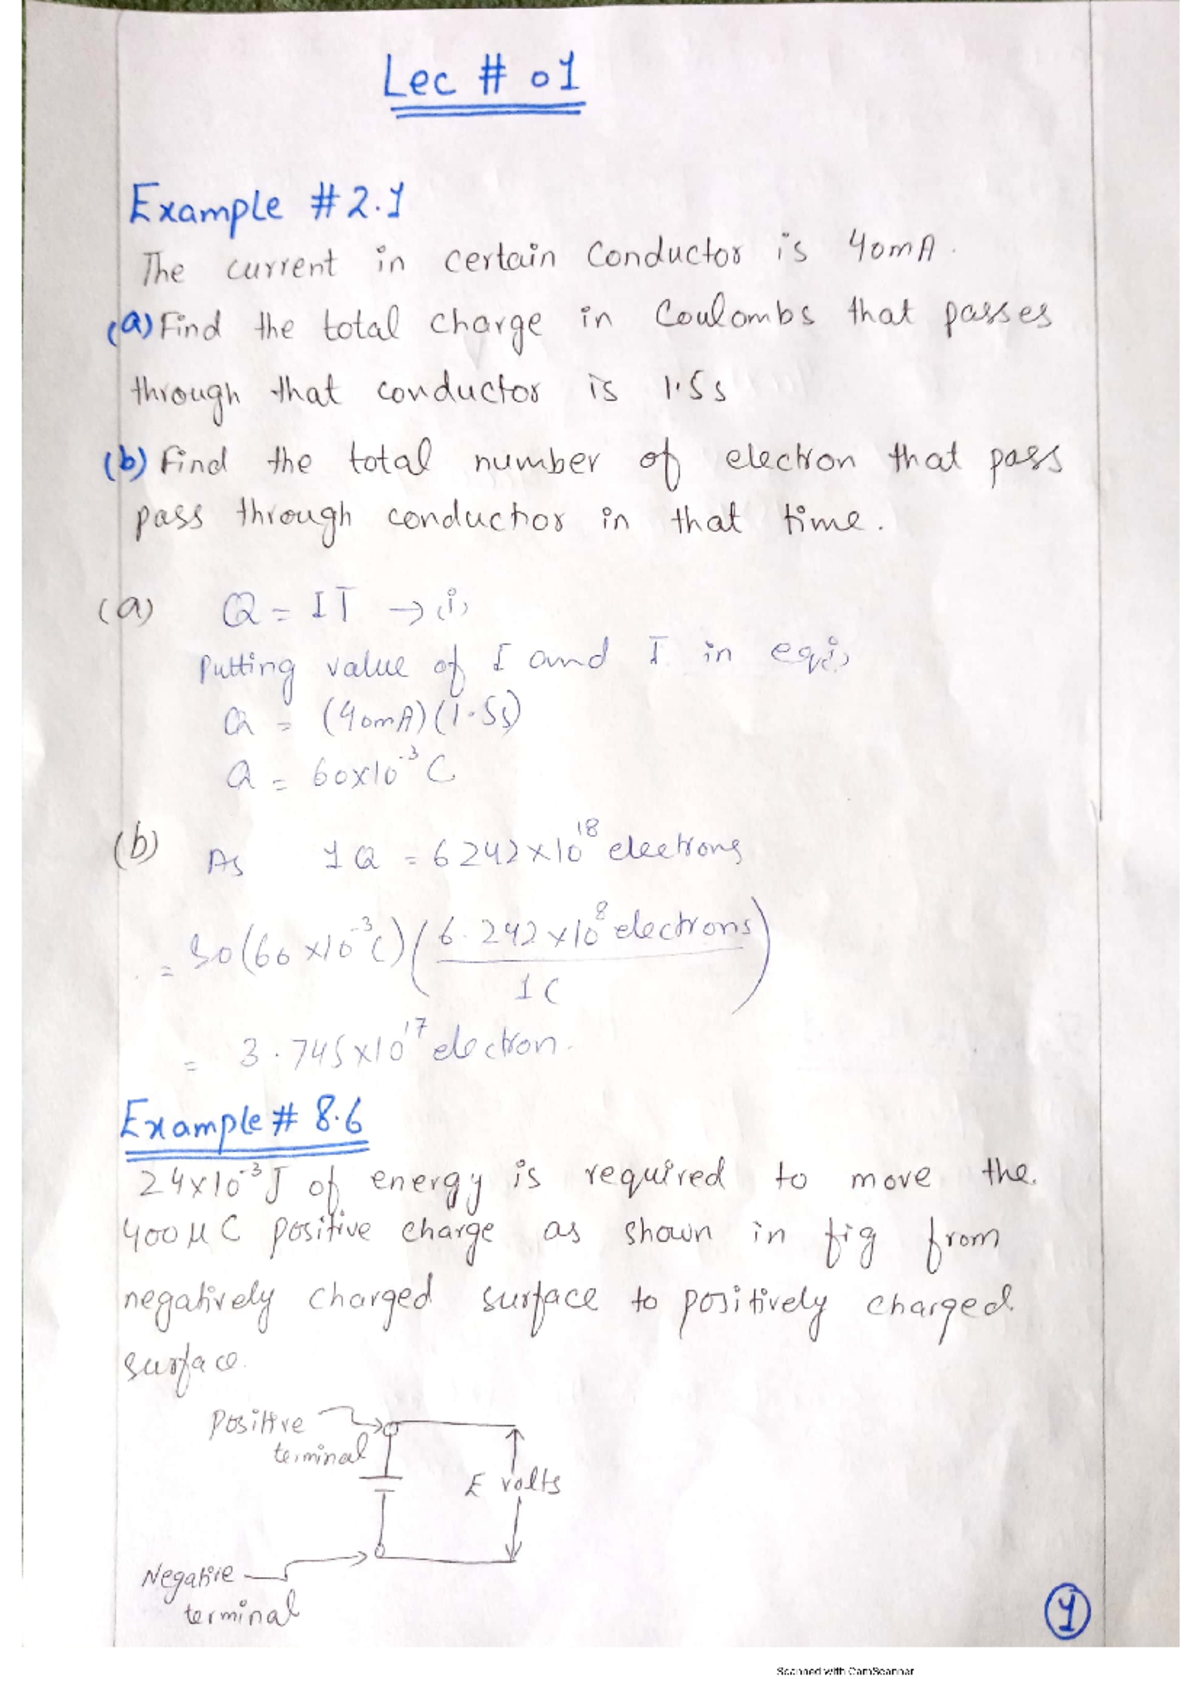 Lec # 01
Example #2.1
The current in certain Conductor is 40mA.
(a) Find the total charge in Coulombs that passes
through that conductor is 1.5s
(b) Find the total number of electron that pass
pass through conductor in that time.
(a) Q = IT → (i)
Putting value of I and T in eq(i)
Q = (40mA)(1.5s)
Q = 60x10⁻³ C
(b) As 1Q = 6242x10¹⁸ electrons
= So(60x10⁻³C)(6.242x10⁸ electrons / 1C)
= 3.745x10¹⁷ electron.
Example # 8.6
24x10⁻³J of energy is required to move the
400μC positive charge as shown in fig from
negatively charged surface to positively charged
surface.
Positive
terminal
E volts
Negative
terminal
1
Scanned with CamScanner